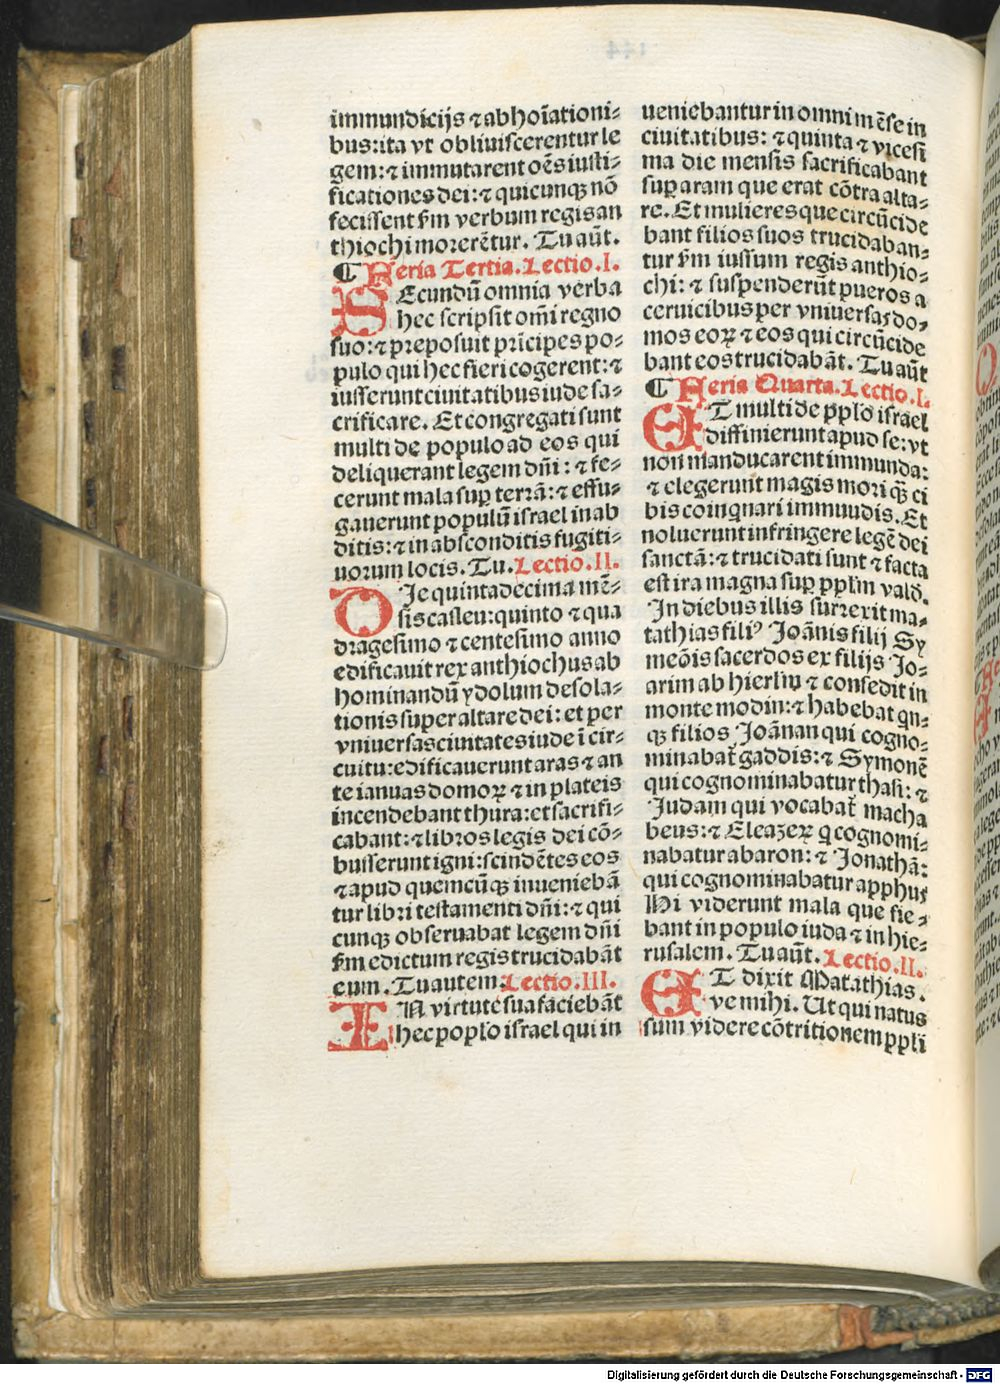 immundicijs ⁊ abhoīationi⸗
bus: ita vt obliuiscerentur le
gem: ⁊ immutarent oēs iusti⸗
ficationes dei: ⁊ quicunqꝫ nō
fecissent ẜm verbum regis an
thiochi morerētur. Tu aūt.
¶ Feria Tertia. Lectio. I.
SEcundū omnia verba
hec scripsit oḿi regno
suo: ⁊ preposuit prīcipes po⸗
pulo qui hec fieri cogerent: ⁊
iusserunt ciuitatibus iude sa⸗
crificare. Et congregati sunt
multi de populo ad eos qui
deliquerant legem dn̄i: ⁊ fe⸗
cerunt mala suꝑ terrā: ⁊ effu⸗
gauerunt populū israel in ab
ditis: ⁊ in absconditis fugiti⸗
uorum locis. Tu. Lectio. II.
DIe quintadecima mē⸗
sis casleu: quinto ⁊ qua
dragesimo ⁊ centesimo anno
edificauit rex anthiochus ab
hominandū ydolum desola⸗
tionis super altare dei: et per
vniuersas ciuitates iude ī cir⸗
cuitu: edificauerunt aras ⁊ an
te ianuas domoꝝ ⁊ in plateis
incendebant thura: et sacrifi⸗
cabant: ⁊ libros legis dei cō⸗
busserunt igni: scindētes eos
⁊ apud quemcūqꝫ inueniebā
tur libri testamenti dn̄i: ⁊ qui
cunqꝫ obseruabat legem dn̄i
ẜm edictum regis trucidabāt
eum. Tu autem. Lectio. III.
IN virtute sua faciebāt
hec popl̄o israel qui in
ueniebantur in omni mēse in
ciuitatibus: ⁊ quinta ⁊ vicesi
ma die mensis sacrificabant
suꝑ aram que erat cōtra alta⸗
re. Et mulieres que circūcide
bant filios suos trucidaban⸗
tur ẜm iussum regis anthio⸗
chi: ⁊ suspenderūt pueros a
ceruicibus per vniuersas do⸗
mos eoꝝ ⁊ eos qui circūcide
bant eos trucidabāt. Tu aūt
¶ Feria Quarta. Lectio. I.
ET multi de ppl̄o israel
diffinierunt apud se: vt
non manducarent immunda:
⁊ elegerunt magis mori qꝫ ci
bis coinquinari immundis. Et
noluerunt infringere legē dei
sanctā: ⁊ trucidati sunt ⁊ facta
est ira magna suꝑ ppl̄m vald.
In diebus illis surrexit ma⸗
tathias filiꝰ Joānis filij Sy
meōis sacerdos ex filijs Jo⸗
arim ab hierl̄m ⁊ consedit in
monte modin: ⁊ habebat qn⸗
qꝫ filios Joānan qui cogno⸗
minabat̄ gaddis: ⁊ Symonē
qui cognominabatur thasi: ⁊
Judam qui vocabat̄ macha
beus: ⁊ Eleazeꝝ q̄ cognomi⸗
nabatur abaron: ⁊ Jonathā:
qui cognominabatur apphus
Hi viderunt mala que fie⸗
bant in populo iuda ⁊ in hie⸗
rusalem. Tu aūt. Lectio. II.
ET dixit Matathias.
ve mihi. Ut qui natus
sum videre cōtritionem ppl̄i
Digitalisierung gefördert durch die Deutsche Forschungsgemeinschaft - DFG